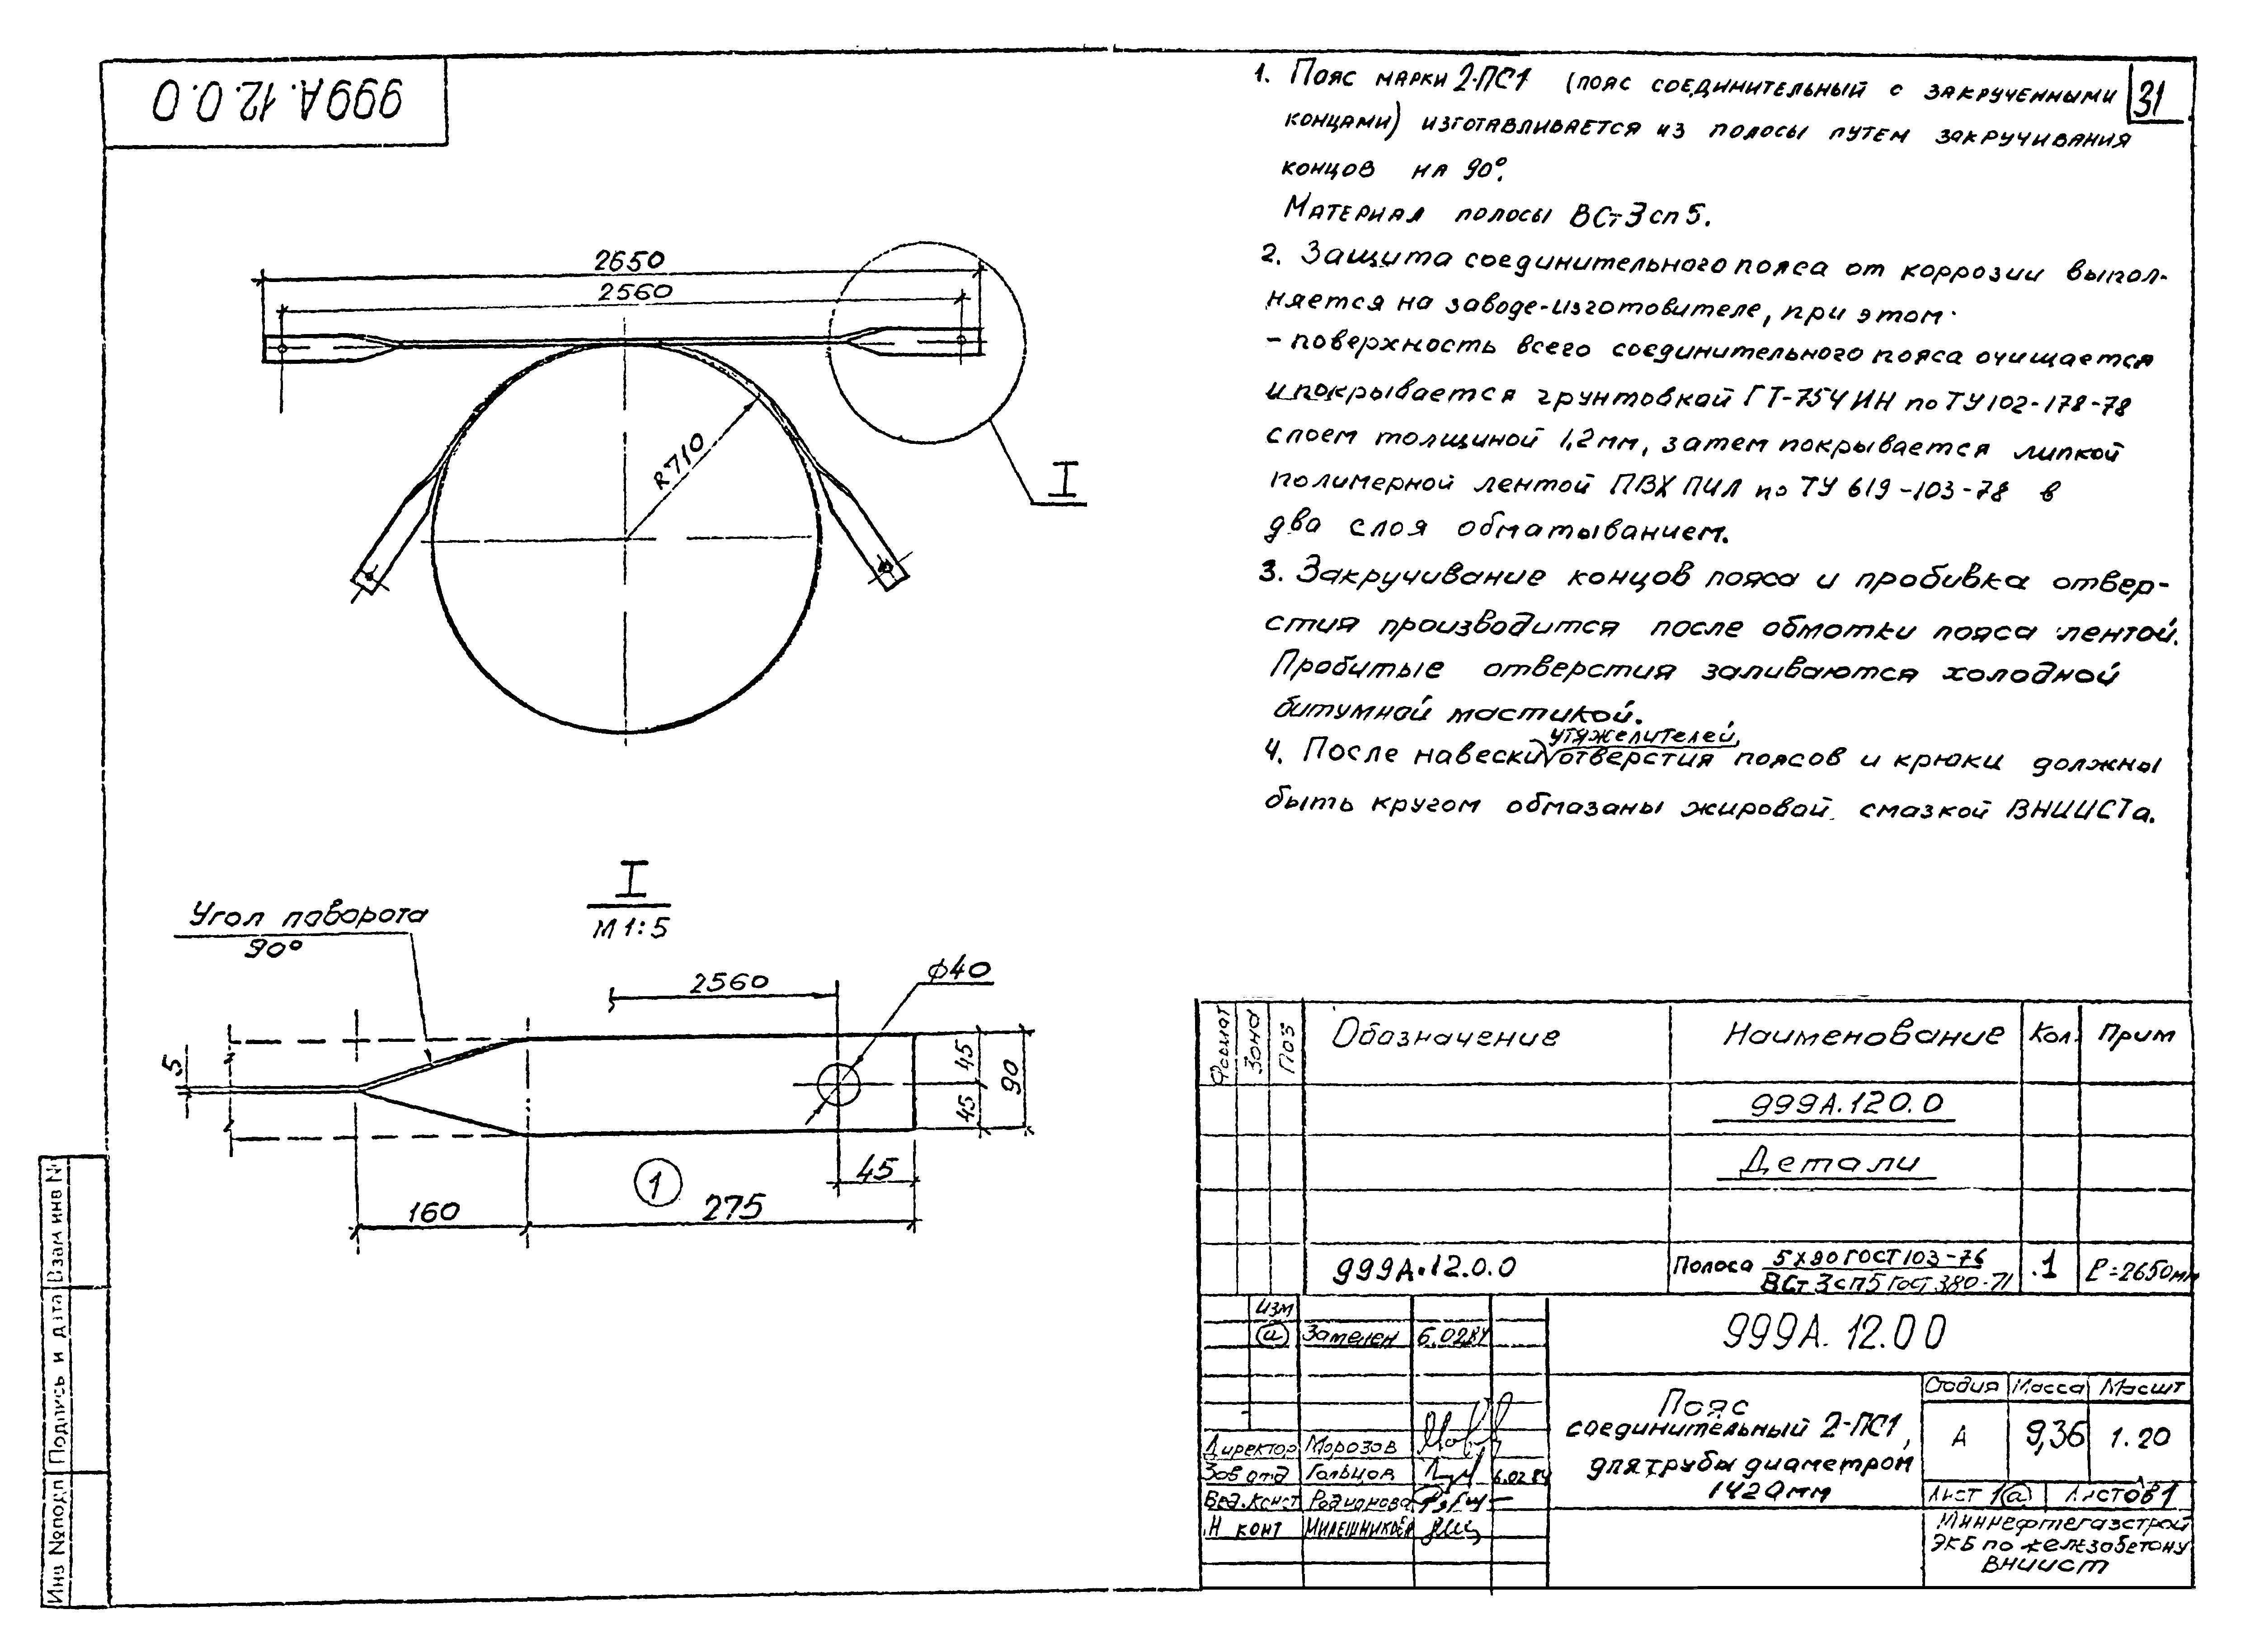 999А.12.0.0
31
1. Пояс марки 2-ПС1 (пояс соединительный с закрученными
концами) изготавливается из полосы путем закручивания
концов на 90°.
Материал полосы ВСт3сп5.
2. Защита соединительного пояса от коррозии выпол-
няется на заводе-изготовителе, при этом
- поверхность всего соединительного пояса очищается
и покрывается грунтовкой ГТ-754ИН по ТУ102-178-78
слоем толщиной 1,2мм, затем покрывается липкой
полимерной лентой ПВХ ПИЛ по ТУ 619-103-78 в
два слоя обматыванием.
3. Закручивание концов пояса и пробивка отвер-
стия производится после обмотки пояса лентой.
Пробитые отверстия заливаются холодной
битумной мастикой.
утяжелителей,
4. После навески отверстия поясов и крюки должны
быть кругом обмазаны жировой смазкой ВНИИСТа.
2650
2560
R710
I
I
М 1:5
Угол поворота
90°
2560
φ40
5
45
45
90
45
1
160
275
Формат
Зона
Поз
Обозначение
Наименование
Кол.
Прим
999А.120.0
Детали
999А.12.0.0
Полоса
5х90 ГОСТ 103-76
ВСт 3сп5 ГОСТ 380-71
1
ℓ=2650мм
Изм
а
Заменен
6.0284
999А.12.00
Пояс
соединительный 2-ПС1,
для трубы диаметром
1420мм
Стадия
Масса
Масшт
А
9,36
1.20
Лист 1 а
Листов 1
Директор
Морозов
Зав отд
Гольцов
6.0284
Вед.конст
Родионова
Н конт
Миннефтегазстрой
ЭКБ по железобетону
ВНИИСТ
Взам инв №
Подпись и дата
Инв №подл